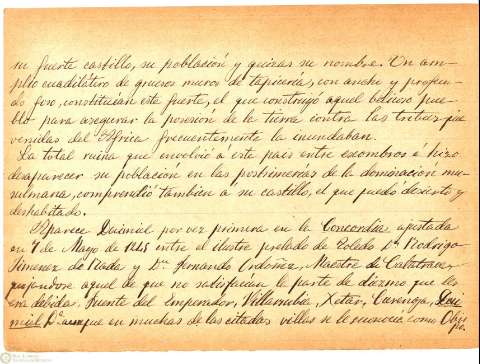 su fuerte castillo, su población y quizas su nombre. Un am-
plio cuadrilátero de gruesos muros de tapiería, con ancho y profun-
do foso, constituian este fuerte, el que construyó aquel belicoso pue-
blo para asegurar la posesion de la tierra contra las tribus que
venidas del Africa frecuentemente la inundaban.
La total ruina que envolvió á este pais entre escombros é hizo
desaparecer su poblacion en las postrimerias de la dominacion mu-
sulmana, comprendió tambien a su castillo, el que quedó desierto y
deshabitado.
Aparece Daimiel por vez primera en la Concordia ajustada
en 7 de Mayo de 1245 entre el ilustre prelado de Toledo Dn. Rodrigo
Jimenez de Rada y Dn. Fernando Ordoñez, Maestre de Calatrava,
quejandose aquel de que no satisfacian la parte de diezmo que les
era debida. Fuente del Emperador, Villarrubia, Xetar, Curenga, Dai-
miel Da. aunque en muchas de las citadas villas se le reconoció como Obis-
po.